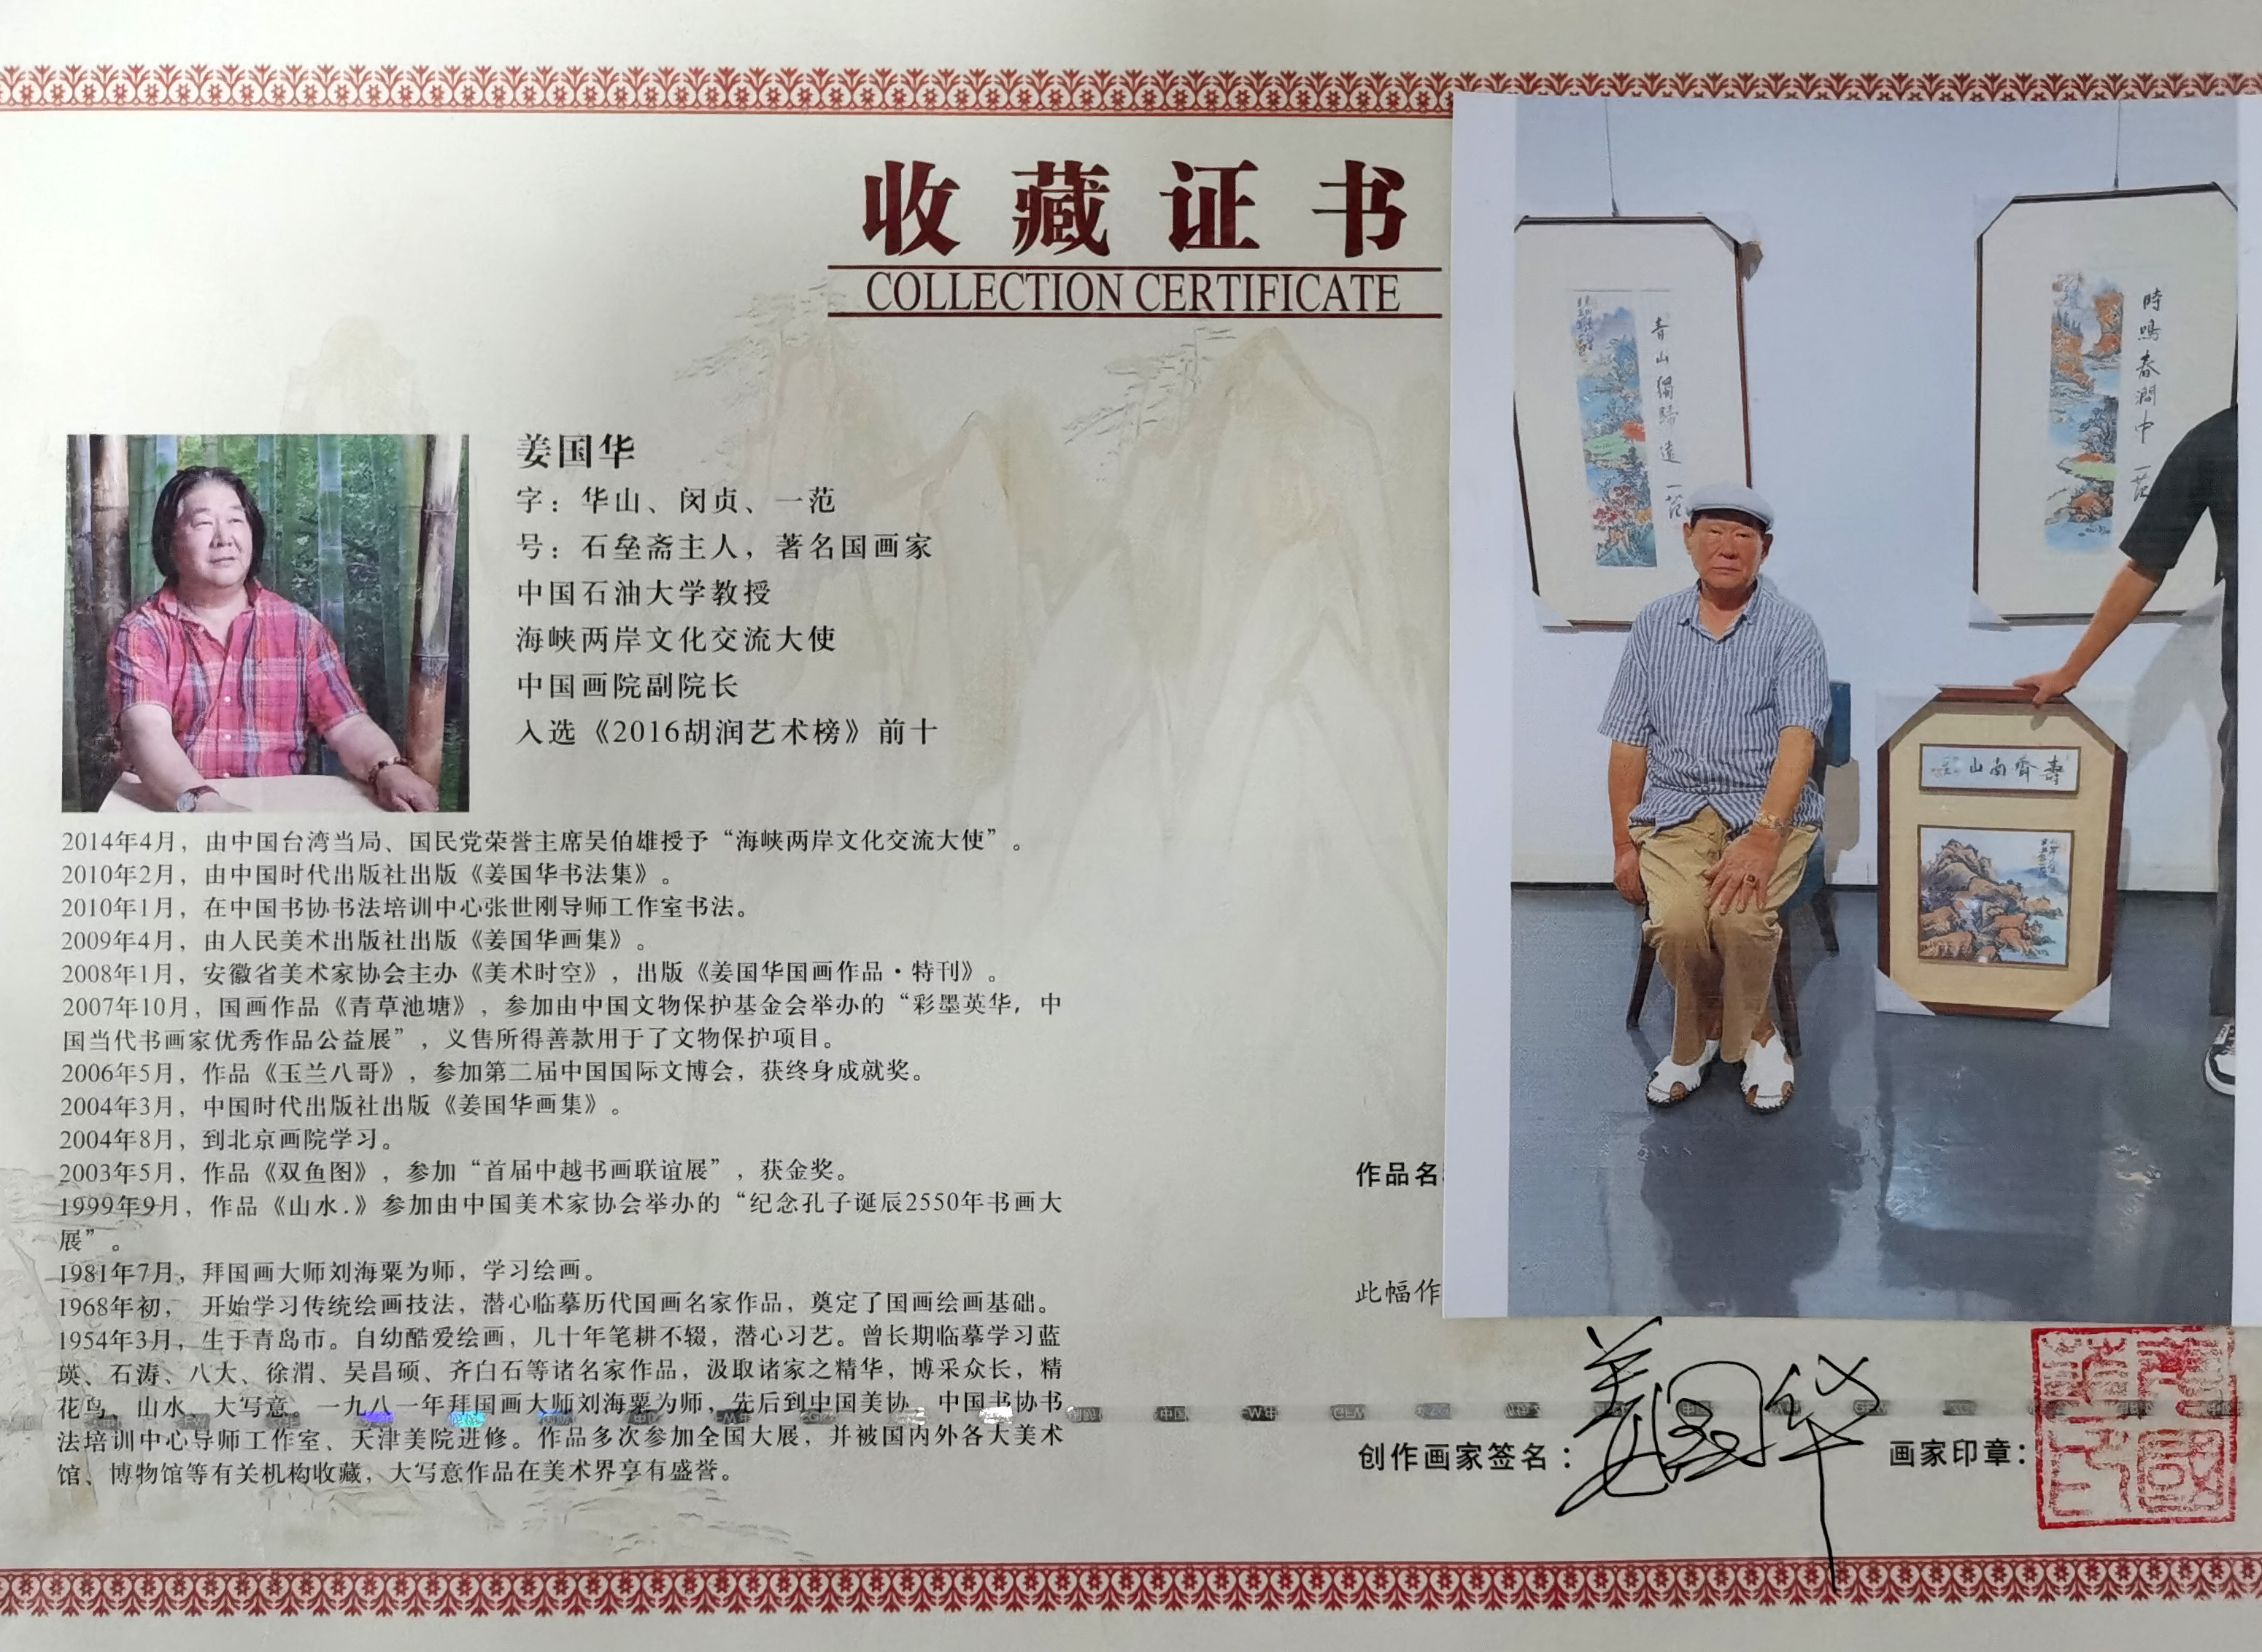 收藏证书
COLLECTION CERTIFICATE
姜国华
字：华山、闵贞、一范
号：石垒斋主人，著名国画家
中国石油大学教授
海峡两岸文化交流大使
中国画院副院长
入选《2016胡润艺术榜》前十
2014年4月，由中国台湾当局、国民党荣誉主席吴伯雄授予“海峡两岸文化交流大使”。
2010年2月，由中国时代出版社出版《姜国华书法集》。
2010年1月，在中国书协书法培训中心张世刚导师工作室书法。
2009年4月，由人民美术出版社出版《姜国华画集》。
2008年1月，安徽省美术家协会主办《美术时空》，出版《姜国华国画作品·特刊》。
2007年10月，国画作品《青草池塘》，参加由中国文物保护基金会举办的“彩墨英华，中
国当代书画家优秀作品公益展”，义售所得善款用于了文物保护项目。
2006年5月，作品《玉兰八哥》，参加第二届中国国际文博会，获终身成就奖。
2004年3月，中国时代出版社出版《姜国华画集》。
2004年8月，到北京画院学习。
2003年5月，作品《双鱼图》，参加“首届中越书画联谊展”，获金奖。
1999年9月，作品《山水.》参加由中国美术家协会举办的“纪念孔子诞辰2550年书画大
展”。
1981年7月，拜国画大师刘海粟为师，学习绘画。
1968年初， 开始学习传统绘画技法，潜心临摹历代国画名家作品，奠定了国画绘画基础。
1954年3月，生于青岛市。自幼酷爱绘画，几十年笔耕不辍，潜心习艺。曾长期临摹学习蓝
瑛、石涛、八大、徐渭、吴昌硕、齐白石等诸名家作品，汲取诸家之精华，博采众长，精
花鸟、山水、大写意。一九八一年拜国画大师刘海粟为师，先后到中国美协、中国书协书
法培训中心导师工作室、天津美院进修。作品多次参加全国大展，并被国内外各大美术
馆、博物馆等有关机构收藏，大写意作品在美术界享有盛誉。
青山独归远 一范
時鳴春澗中 一范
壽齊南山
作品名
此幅作
创作画家签名：姜国华
画家印章：